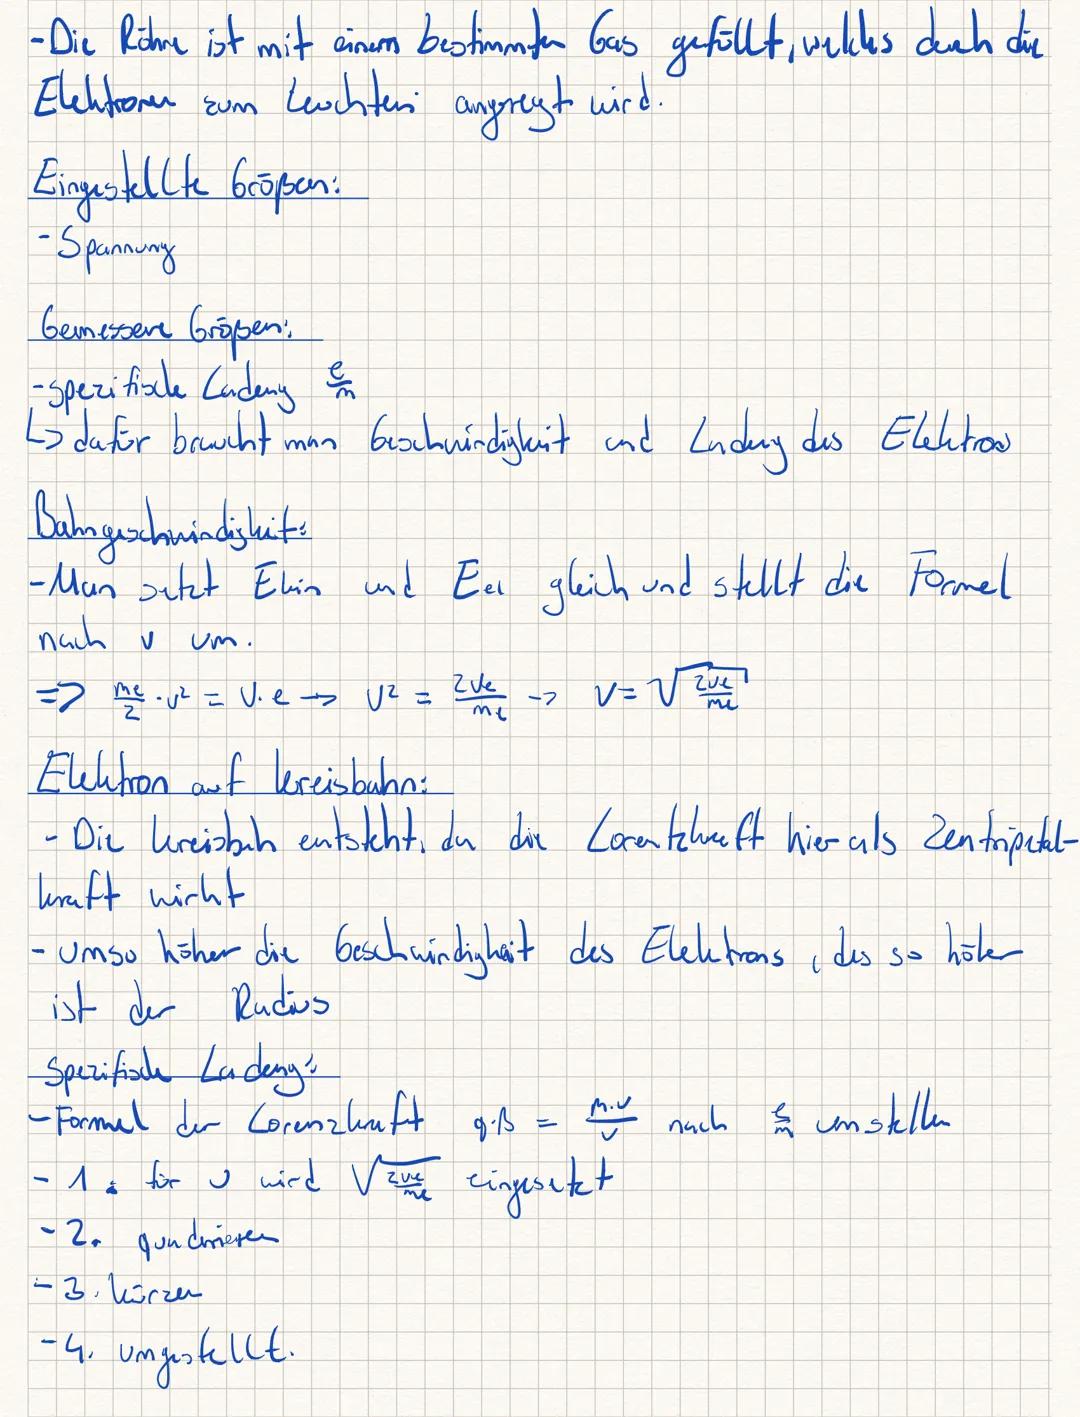 -Die Röhre ist mit einem bestimmten Gas gefüllt, welches durch die
Elektronen zum Leuchten angeregt wird.
Eingestellte Größen:
-Spannung
Gemessene Größen:
-spezifische Ladung e/m
↳ dafür braucht man Geschwindigkeit und Ladung des Elektrons
Bahngeschwindigkeit:
-Man setzt Ekin und Eel gleich und stellt die Formel
nach v um.
=> me/2 · v² = U·e → v² = 2Ue/me → v = √(2Ue/me)
Elektron auf Kreisbahn:
- Die Kreisbah entsteht, da die Lorentzkraft hier als Zentripetal-
kraft wirkt
- umso höher die Geschwindigkeit des Elektrons, des so höher
ist der Radius
Spezifische Ladung:
-Formel der Lorenzkraft q·B = m·v/r nach e/m umstellen
- 1. für v wird √(2Ue/me) eingesetzt
- 2. quadrieren
- 3. kürzen
- 4. umgestellt.